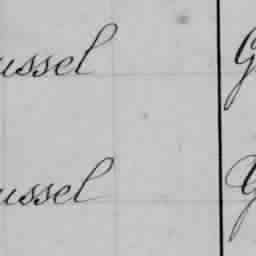 ussel G
ussel G